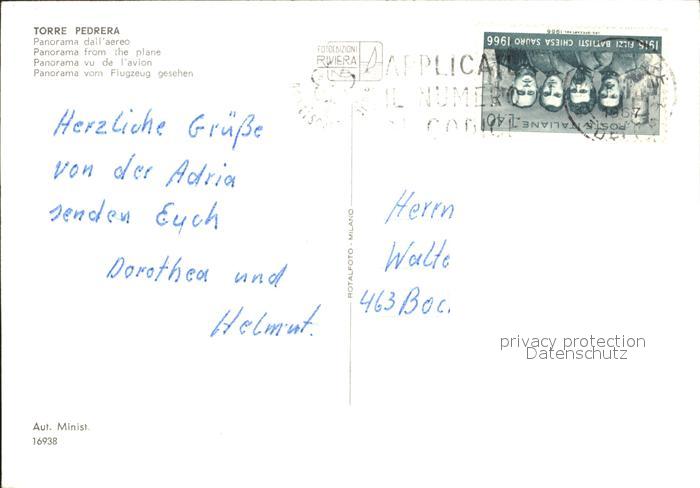 TORRE PEDRERA
Panorama dall'aereo
Panorama from the plane
Panorama vu de l'avion
Panorama vom Flugzeug gesehen
FOTOEDIZIONI
RIVIERA
APPLICA
IL NUMERO
DI CODI
1916 FILZI BATTISTI CHIESA SAURO 1966
POSTE ITALIANE L.40
Herzliche Grüße
von der Adria
senden Euch
Dorothea und
Helmut.
ROTALFOTO - MILANO
Herrn
Walte
463 Boc.
privacy protection
Datenschutz
Aut. Minist.
16938